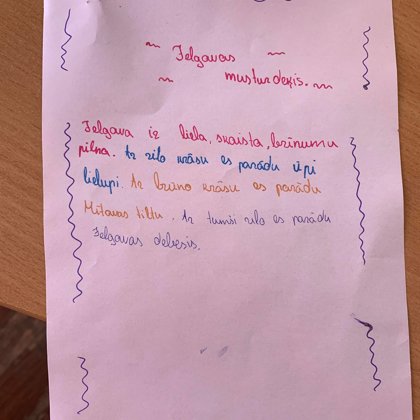 Jelgavas
musturdeķis.
Jelgava ir liela, skaista, brīnumu
pilna. Ar zilo krāsu es parādu upi
lielupi. Ar brūno krāsu es parādu
Mītavas tiltu. Ar tumši zilo es parādu
Jelgavas debesis.